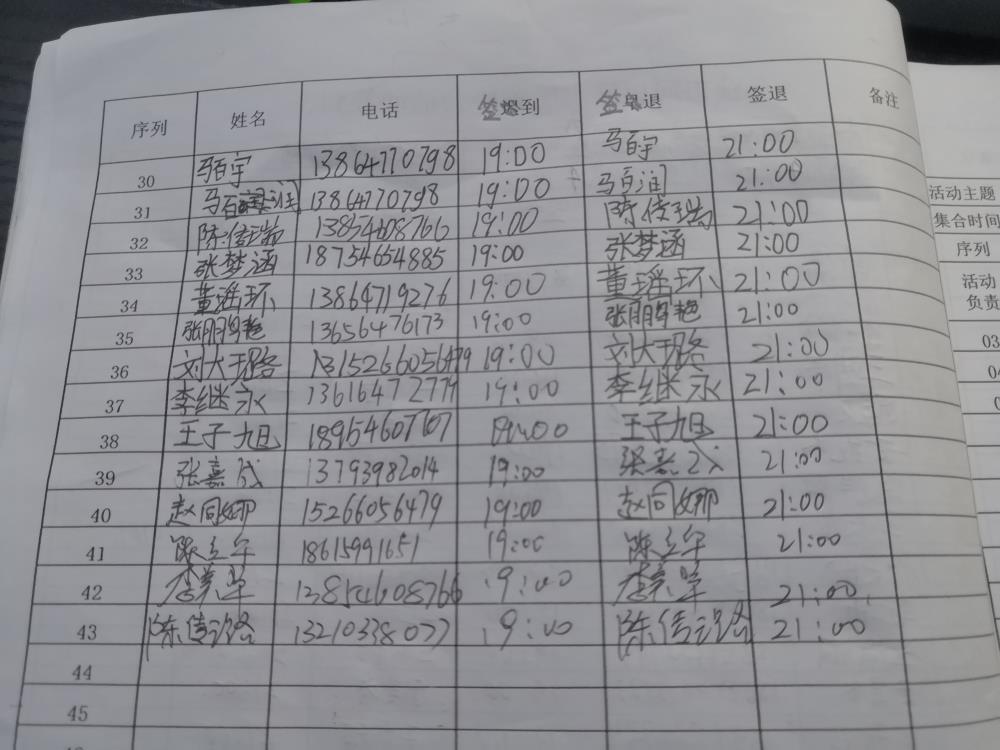 序列 姓名 电话 签到 签退 签退 备注
30 马百宇 13864770798 19:00 马百宇 21:00
31 马百润 13864770798 19:00 马百润 21:00
32 陈信瑞 13854608766 19:00 陈信瑞 21:00
33 张梦涵 18754654885 19:00 张梦涵 21:00
34 董瑶环 13864719276 19:00 董瑶环 21:00
35 13656476173 19:00 21:00
36 刘大璐 15266056479 19:00 刘大璐 21:00
37 李继永 13616472779 19:00 李继永 21:00
38 王子旭 18954607107 19:00 王子旭 21:00
39 张嘉 13793982014 19:00 张嘉 21:00
40 赵同娜 15266056479 19:00 赵同娜 21:00
41 陈立军 18615991651 19:00 陈立军 21:00
42 李美 13854608766 19:00 李美 21:00
43 陈信 13210338077 19:00 陈信 21:00
44
45
活动主题
集合时间
序列
活动
负责
03